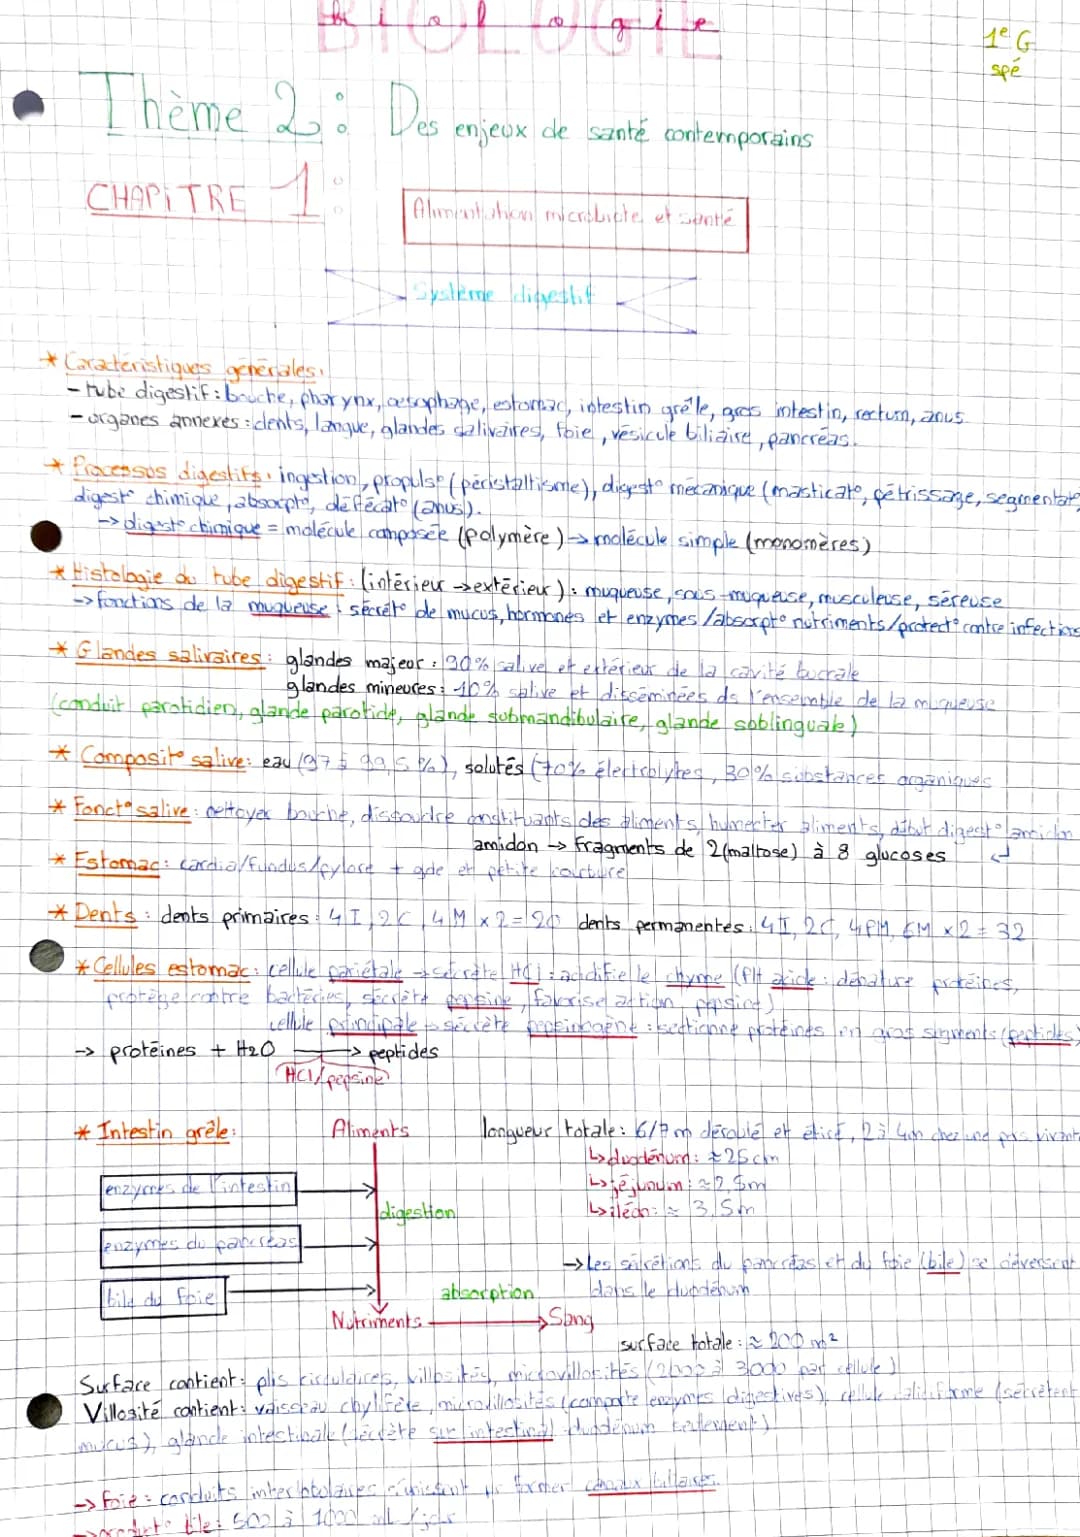 Biologie
BIOLOGIE
1e G
spé
Thème 2 : Des enjeux de santé contemporains
CHAPiTRE 1 :
Alimentation microbiote et santé
Système digestif
* Caractéristiques générales:
- tube digestif : bouche, pharynx, oesophage, estomac, intestin grêle, gros intestin, rectum, anus.
- organes annexes : dents, langue, glandes salivaires, foie, vésicule biliaire, pancréas.
* Processus digestifs : ingestion, propuls° (péristaltisme), digest° mécanique (masticat°, pétrissage, segmentat°,
digest° chimique, absorpt°, défécat° (anus).
-> digest° chimique = molécule composée (polymère) -> molécule simple (monomères)
* Histologie du tube digestif : (intérieur -> extérieur) : muqueuse, sous-muqueuse, musculeuse, séreuse
-> fonctions de la muqueuse : sécrét° de mucus, hormones et enzymes / absorpt° nutriments / protect° contre infections
* Glandes salivaires : glandes majeur : 90% salive et extérieur de la cavité buccale
glandes mineures : 10% salive et disséminées ds l'ensemble de la muqueuse
(conduit parotidien, glande parotide, glande submandibulaire, glande soblinguale)
* Composit° salive : eau (97 à 99,5 %), solutés (70% électrolytes, 30% substances organiques
* Fonct° salive : nettoyer bouche, dissoudre constituants des aliments, humecter aliments, début digest° amidon
amidon -> fragments de 2 (maltose) à 8 glucoses
* Estomac : cardia/fundus/pylore + gde et petite courbure
* Dents : dents primaires : 4I, 2C, 4M x2 = 20 dents permanentes : 4I, 2C, 4PM, 6M x2 = 32
* Cellules estomac : cellule pariétale -> sécrète HCl : acidifie le chyme (PH acide : dénature protéines,
protège contre bactéries, sécrète pepsine, favorise action pepsine)
cellule principale -> sécrète pepsinogène : sectionne protéines en gros segments (peptides)
-> protéines + H2O -> peptides
HCl/pepsine
* Intestin grêle :
Aliments
longueur totale : 6/7 m déroulé et étiré, 2 à 4m chez une prs vivant
↳ duodénum : ≈ 25cm
↳ jéjunum : ≈ 2,5m
↳ iléon : ≈ 3,5m
enzymes de l'intestin
digestion
enzymes du pancréas
-> Les sécrétions du pancréas et du foie (bile) se déversent
dans le duodénum
bile du foie
absorption
Nutriments -> Sang
surface totale : ≈ 200 m²
Surface contient : plis circulaires, villosités, microvillosités (2000 à 3000 par cellule)
Villosité contient : vaisseau chylifère, microvillosités (comporte enzymes digestives), cellule caliciforme (sécrètent
mucus), glande intestinale (sécrète suc intestinal duodénum seulement)
-> Foie : conduits interlobulaires s'unissent pr former canaux biliaires.
-> product° bile : 500 à 1000 mL / jour